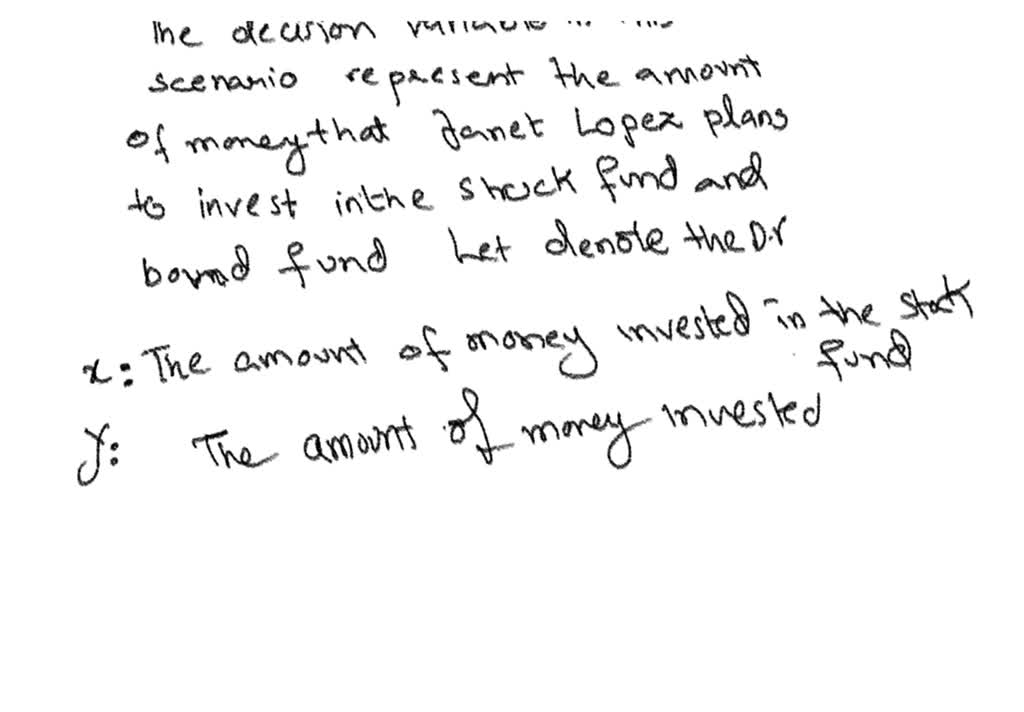 The decision variable in this
scenario represent the amount
of money that Janet Lopez plans
to invest in the stock fund and
bound fund Let denote the D.V
x: The amount of money invested in the stock
fund
y: The amount of money invested